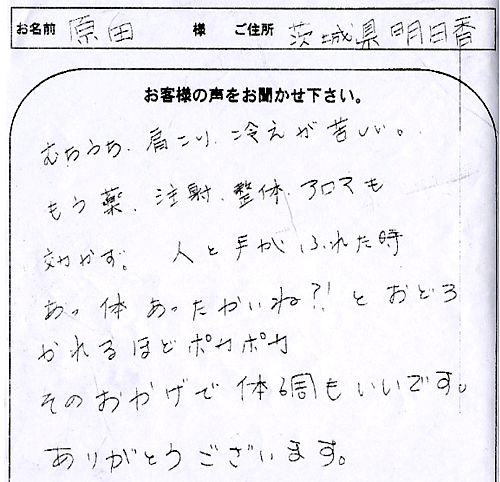 お名前 原田 様 ご住所 茨城県 明日香
お客様の声をお聞かせ下さい。
むちうち、肩こり、冷えが苦しい。
もう薬、注射、整体、アロマも
効かず。 人と手がふれた時
あっ体あったかいね?!とおどろ
かれるほどポカポカ
そのおかげで体調もいいです。
ありがとうございます。